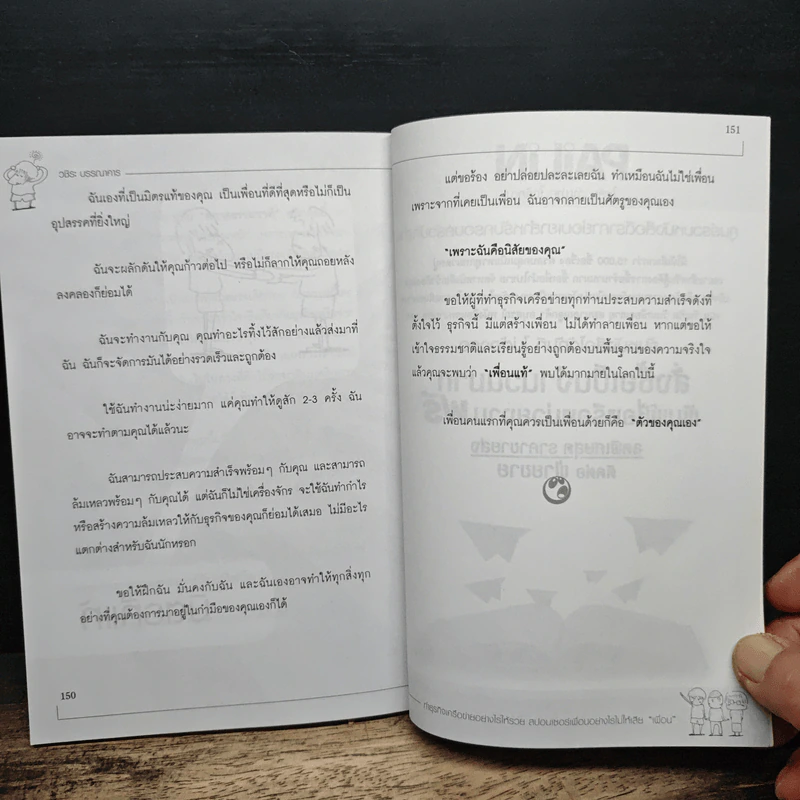 วชิระ บรรณาคาร
ฉันเองที่เป็นมิตรแท้ของคุณ เป็นเพื่อนที่ดีที่สุดหรือไม่ก็เป็น
อุปสรรคที่ยิ่งใหญ่
ฉันจะผลักดันให้คุณก้าวต่อไป หรือไม่ก็ลากให้คุณถอยหลัง
ลงคลองก็ย่อมได้
ฉันจะทำงานกับคุณ คุณทำอะไรทิ้งไว้สักอย่างแล้วส่งมาที่
ฉัน ฉันก็จะจัดการมันได้อย่างรวดเร็วและถูกต้อง
ใช้ฉันทำงานน่ะง่ายมาก แค่คุณทำให้ดูสัก 2-3 ครั้ง ฉัน
อาจจะทำตามคุณได้แล้วนะ
ฉันสามารถประสบความสำเร็จพร้อมๆ กับคุณ และสามารถ
ล้มเหลวพร้อมๆ กับคุณได้ แต่ฉันก็ไม่ใช่เครื่องจักร จะใช้ฉันทำกำไร
หรือสร้างความล้มเหลวให้กับธุรกิจของคุณก็ย่อมได้เสมอ ไม่มีอะไร
แตกต่างสำหรับฉันนักหรอก
ขอให้ฝึกฉัน มั่นคงกับฉัน และฉันเองอาจทำให้ทุกสิ่งทุก
อย่างที่คุณต้องการมาอยู่ในกำมือของคุณเองก็ได้
150
151
แต่ขอร้อง อย่าปล่อยปละละเลยฉัน ทำเหมือนฉันไม่ใช่เพื่อน
เพราะจากที่เคยเป็นเพื่อน ฉันอาจกลายเป็นศัตรูของคุณเอง
"เพราะฉันคือนิสัยของคุณ"
ขอให้ผู้ที่ทำธุรกิจเครือข่ายทุกท่านประสบความสำเร็จดังที่
ตั้งใจไว้ ธุรกิจนี้ มีแต่สร้างเพื่อน ไม่ได้ทำลายเพื่อน หากแต่ขอให้
เข้าใจธรรมชาติและเรียนรู้อย่างถูกต้องบนพื้นฐานของความจริงใจ
แล้วคุณจะพบว่า "เพื่อนแท้" พบได้มากมายในโลกใบนี้
เพื่อนคนแรกที่คุณควรเป็นเพื่อนด้วยก็คือ "ตัวของคุณเอง"
ทำธุรกิจเครือข่ายอย่างไรให้รวย สปอนเซอร์เพื่อนอย่างไรไม่ให้เสีย "เพื่อน"